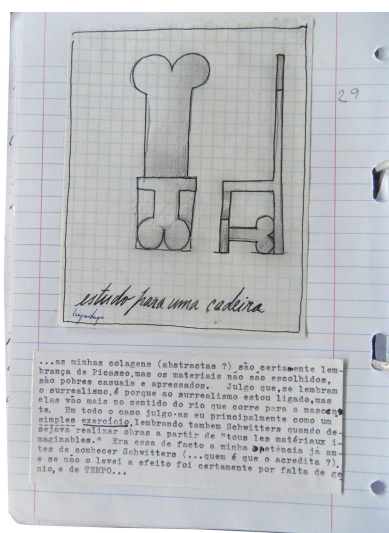 29
estudo para uma cadeira
...as minhas colagens (abstractas ?) são certamente lem-
brança de Picasso,mas os materiais não são escolhidos,
são pobres casuais e apressados.  Julgo que,se lembram
o surrealismo,é porque ao surrealismo estou ligado,mas
elas vão mais no sentido do rio que corre para a nascen
te.  Em todo o caso julgo-as eu principalmente como um
simples exercício,lembrando tambem Schwitters quando de-
sejava realizar obras a partir de "tous les matériaux i-
maginables."  Era essa de facto a minha apetência já an-
tes de conhecer Schwitters (...quem é que o acredita ?),
e se não o levei a efeito foi certamente por falta de ge
nio,e de TEMPO...